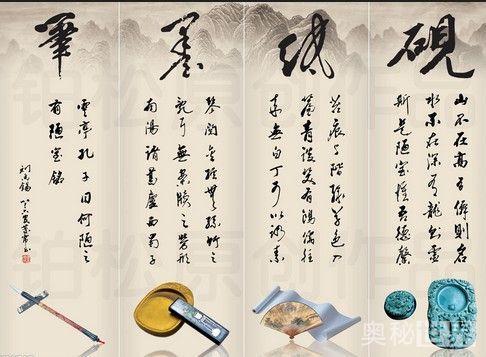 硯
山不在高有僊則名
水不在深有龍則靈
斯是陋室惟吾德馨
紙
苔痕上階緑草色入
簾青談笑有鴻儒往
來無白丁可以調素
墨
琴閲金經無絲竹之
亂耳無案牘之勞形
南陽諸葛廬西蜀子
筆
雲亭孔子曰何陋之
有陋室銘
劉禹錫
铂松原创作品
奥秘